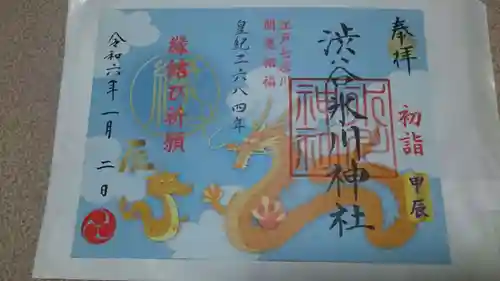 奉拝
初詣
甲辰
渋谷氷川神社
江戸七氷川
開運招福
皇紀二六八四年
縁結び祈願
令和六年一月二日